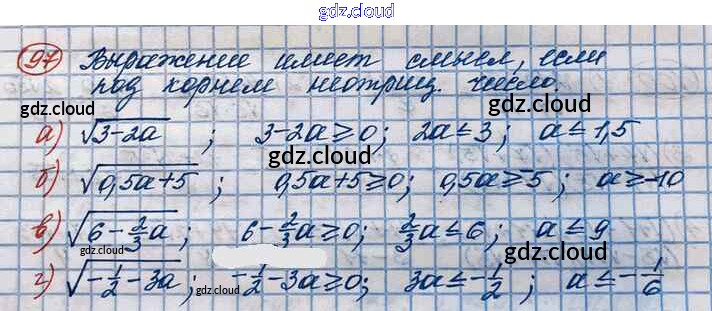 gdz.cloud
97 Выражение имеет смысл, если
под корнем неотриц. число.
gdz.cloud
gdz.cloud
а) √3-2a ; 3-2a≥0; 2a≤3; a≤1,5
gdz.cloud
б) √0,5a+5 ; 0,5a+5≥0; 0,5a≥-5; a≥-10
в) √6-2/3a ; 6-2/3a≥0; 2/3a≤6; a≤9
gdz.cloud
г) √-1/2-3a ; -1/2-3a≥0; 3a≤-1/2; a≤-1/6
gdz.cloud
gdz.cloud